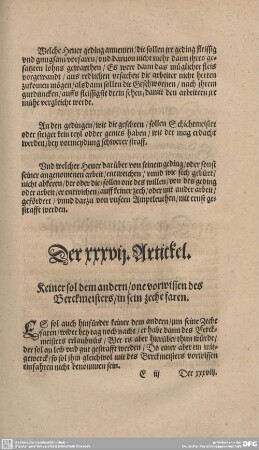 Welche Hewer geding annemen/ die sollen jr geding fleissig
vnd gnugsam vorfaren/ vnd daruon nicht mehr dann jhres ge-
satzten lohns gewarthen/ Es were dann das müglicher fleis
vorgewand/ aus redlichen vrsachen die arbeiter nicht hetten
zukomen mögen/ alsdann sollen die Geschwornen/ nach jhrem
gutduncken/ auffs fleissigste darein sehen/ damit den arbeitern jre
mühe vergleicht werde.
An den gedingen/ wie die geschehen/ sollen Schichtmeister
oder steiger kein teyl odder genies haben/ wie der mag erdacht
werden/ bey vormeydung schwerer straff.
Vnd welcher Hewer darüber von seinem geding/ oder sonst
seiner angenomenen arbeit/ entweichen/ vnnd wie sich gebürt/
nicht abkeren/ der oder die/ sollen von des wegen/ von des geding
der arbeit/ er entwichen/ auff keiner zech/ oder mit ander arbeit/
gefördert/ vnnd darzu von vnsern Amptleuthen/ mit ernst ge-
strafft werden.
Der xxxvij. Artickel.
Keiner sol dem andern/ one vorwissen des
Berckmeisters/ in sein zeche faren.
ES sol auch hinfürder keiner dem andern/ jnn seine Zeche
faren/ wider bey tag noch nacht/ er habe dann des Berck-
meisters erlaubnüs/ Wer es aber hierüber thun würde/
der sol an leib vnd gut gestrafft werden/ Do einer aber ein mit-
gewerck/ so sol jhm gleichwol mit des Berckmeisters vorwissen
einfahren nicht benommen sein.
E iij Der xxxviij.